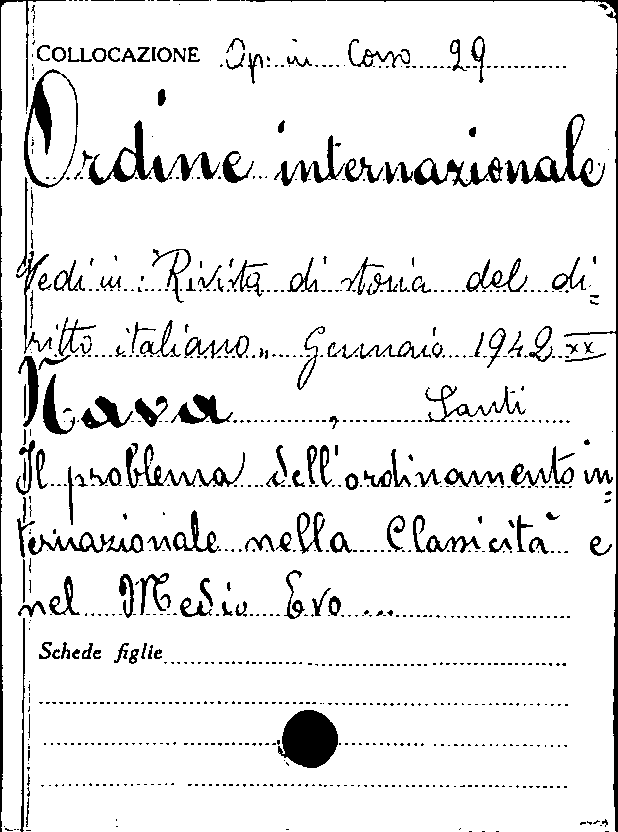 COLLOCAZIONE Op. in Corso 29
Ordine internazionale
Vedi in: "Rivista di storia del di=
ritto italiano" Gennaio 1942 XX
Nava, Santi
Il problema dell'ordinamento in=
ternazionale nella Classicità e
nel Medio Evo...
Schede figlie